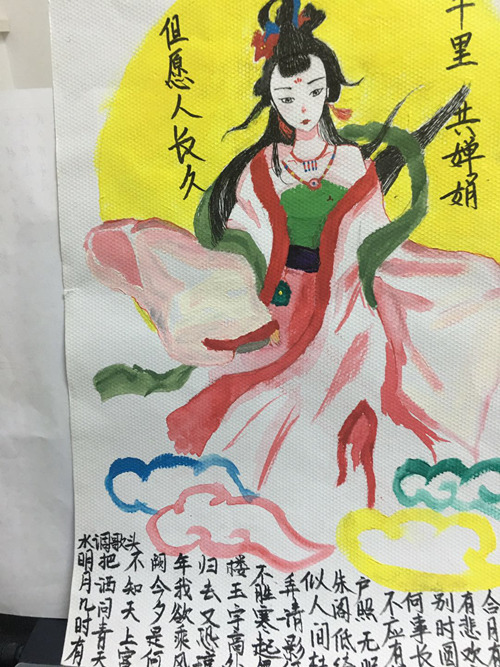 但愿人长久
千里共婵娟
水调歌头
明月几时有
把洒问青天
不知天上宫
阙今夕是何
年我欲乘风
归去又恐
楼玉宇高处
不胜寒起舞
弄清影
似人间
朱阁低绮
户照无
不应有
何事长
别时圆
有悲欢
合月